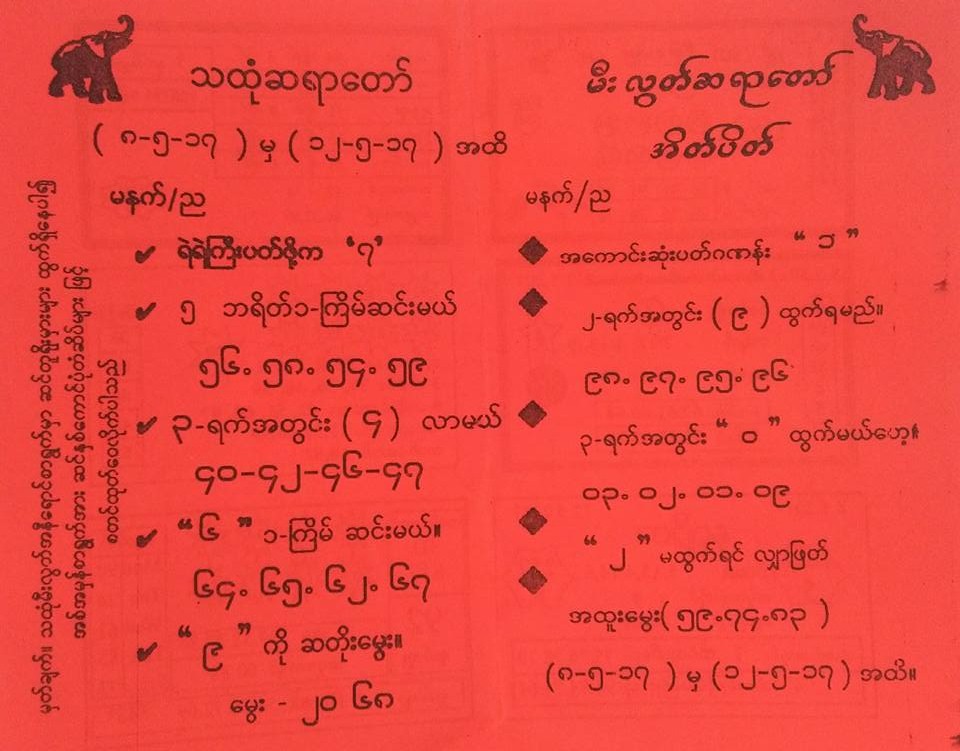 သထုံဆရာတော်
( ၈-၅-၁၇ ) မှ ( ၁၂-၅-၁၇ ) အထိ
မနက်/ည
ရဲရဲကြီးပတ်ဖို့က ‘၇’
၅ ဘရိတ်၁-ကြိမ်ဆင်းမယ်
၅၆. ၅၈. ၅၄. ၅၉
၃-ရက်အတွင်း ( ၄ ) လာမယ်
၄၀-၄၂-၄၆-၄၇
“ ၆ ” ၁-ကြိမ် ဆင်းမယ်။
၆၄. ၆၅. ၆၂. ၆၇
“ ၉ ” ကို ဆတိုးမွေး။
မွေး - ၂၀ ၆၈
မီးလွှတ်ဆရာတော်
အိတ်ပိတ်
မနက်/ည
အကောင်းဆုံးပတ်ဂဏန်း “ ၁ ”
၂-ရက်အတွင်း ( ၉ ) ထွက်ရမည်။
၉၈. ၉၇. ၉၅. ၉၆
၃-ရက်အတွင်း “ ၀ ” ထွက်မယ်ဟေ့။
၀၃. ၀၂. ၀၁. ၀၉
“ ၂ ” မထွက်ရင် လျှာဖြတ်
အထူးမွေး( ၅၉.၇၄.၈၃ )
(၈-၅-၁၇ ) မှ (၁၂-၅-၁၇ ) အထိ။